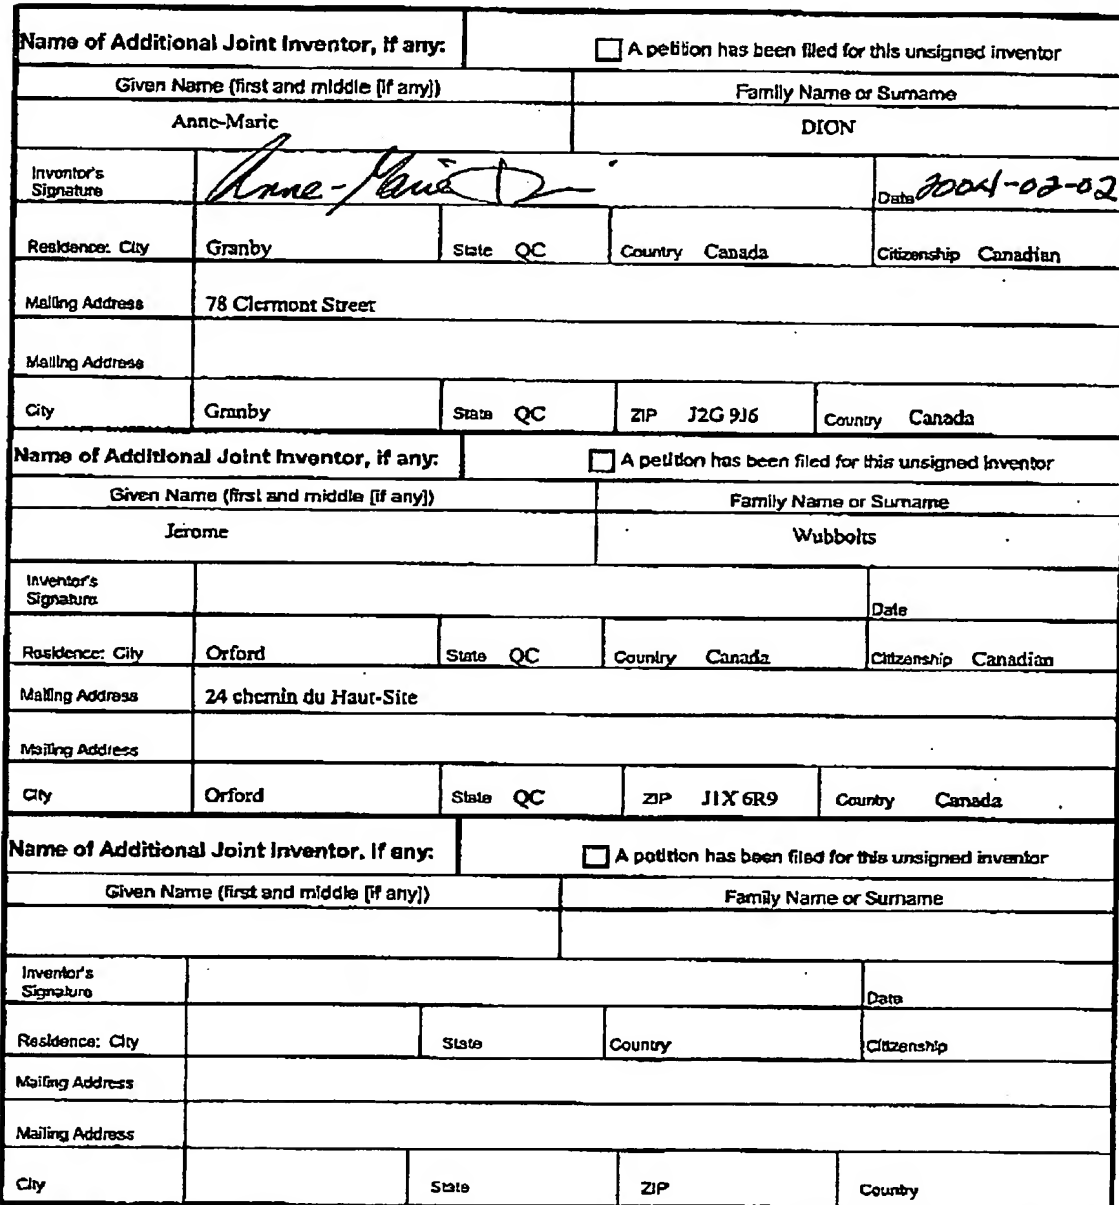 Name of Additional Joint Inventor, if any: A petition has been filed for this unsigned inventor
Given Name (first and middle [if any]) Family Name or Surname
Anne-Marie DION
Inventor's Signature Anne-Marie Dion Date 2004-02-02
Residence: City Granby State QC Country Canada Citizenship Canadian
Mailing Address 78 Clermont Street
Mailing Address
City Granby State QC ZIP J2G 9J6 Country Canada
Name of Additional Joint Inventor, if any: A petition has been filed for this unsigned inventor
Given Name (first and middle [if any]) Family Name or Surname
Jerome Wubbolts
Inventor's Signature Date
Residence: City Orford State QC Country Canada Citizenship Canadian
Mailing Address 24 chemin du Haut-Site
Mailing Address
City Orford State QC ZIP J1X 6R9 Country Canada
Name of Additional Joint Inventor, if any: A petition has been filed for this unsigned inventor
Given Name (first and middle [if any]) Family Name or Surname
Inventor's Signature Date
Residence: City State Country Citizenship
Mailing Address
Mailing Address
City State ZIP Country